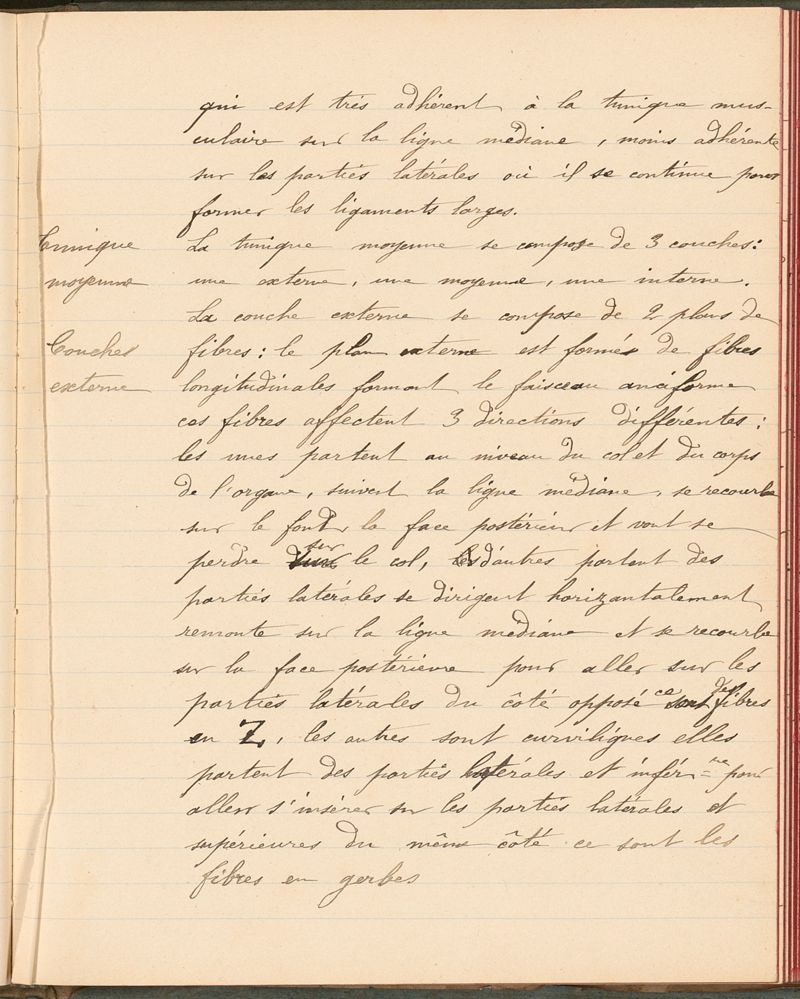 qui est très adhérent à la tunique mus-
culaire sur la ligne médiane, moins adhérente
sur les parties latérales où il se continue pour
former les ligaments larges.
Tunique La tunique moyenne se compose de 3 couches:
moyenne une externe, une moyenne, une interne.
La couche externe se compose de 2 plans de
Couches fibres: le plan externe est formés de fibres
externe longitudinales formant le faisceau ansiforme
ces fibres affectent 3 directions différentes:
les unes partent au niveau du col et du corps
de l'organe, suivent la ligne médiane, se recourbe
sur le fond, la face postérieur et vont se
perdre sur le col, d'autres partent des
parties latérales se dirigent horizantalement
remonte sur la ligne médiane et se recourbe
sur la face postérieure pour aller sur les
parties latérales du côté opposé ce sont des fibres
en Z, les autres sont curvilignes elles
partent des parties latérales et infér=re pour
aller s'insérer sur les parties latérales et
supérieures du même côté ce sont les
fibres en gerbes